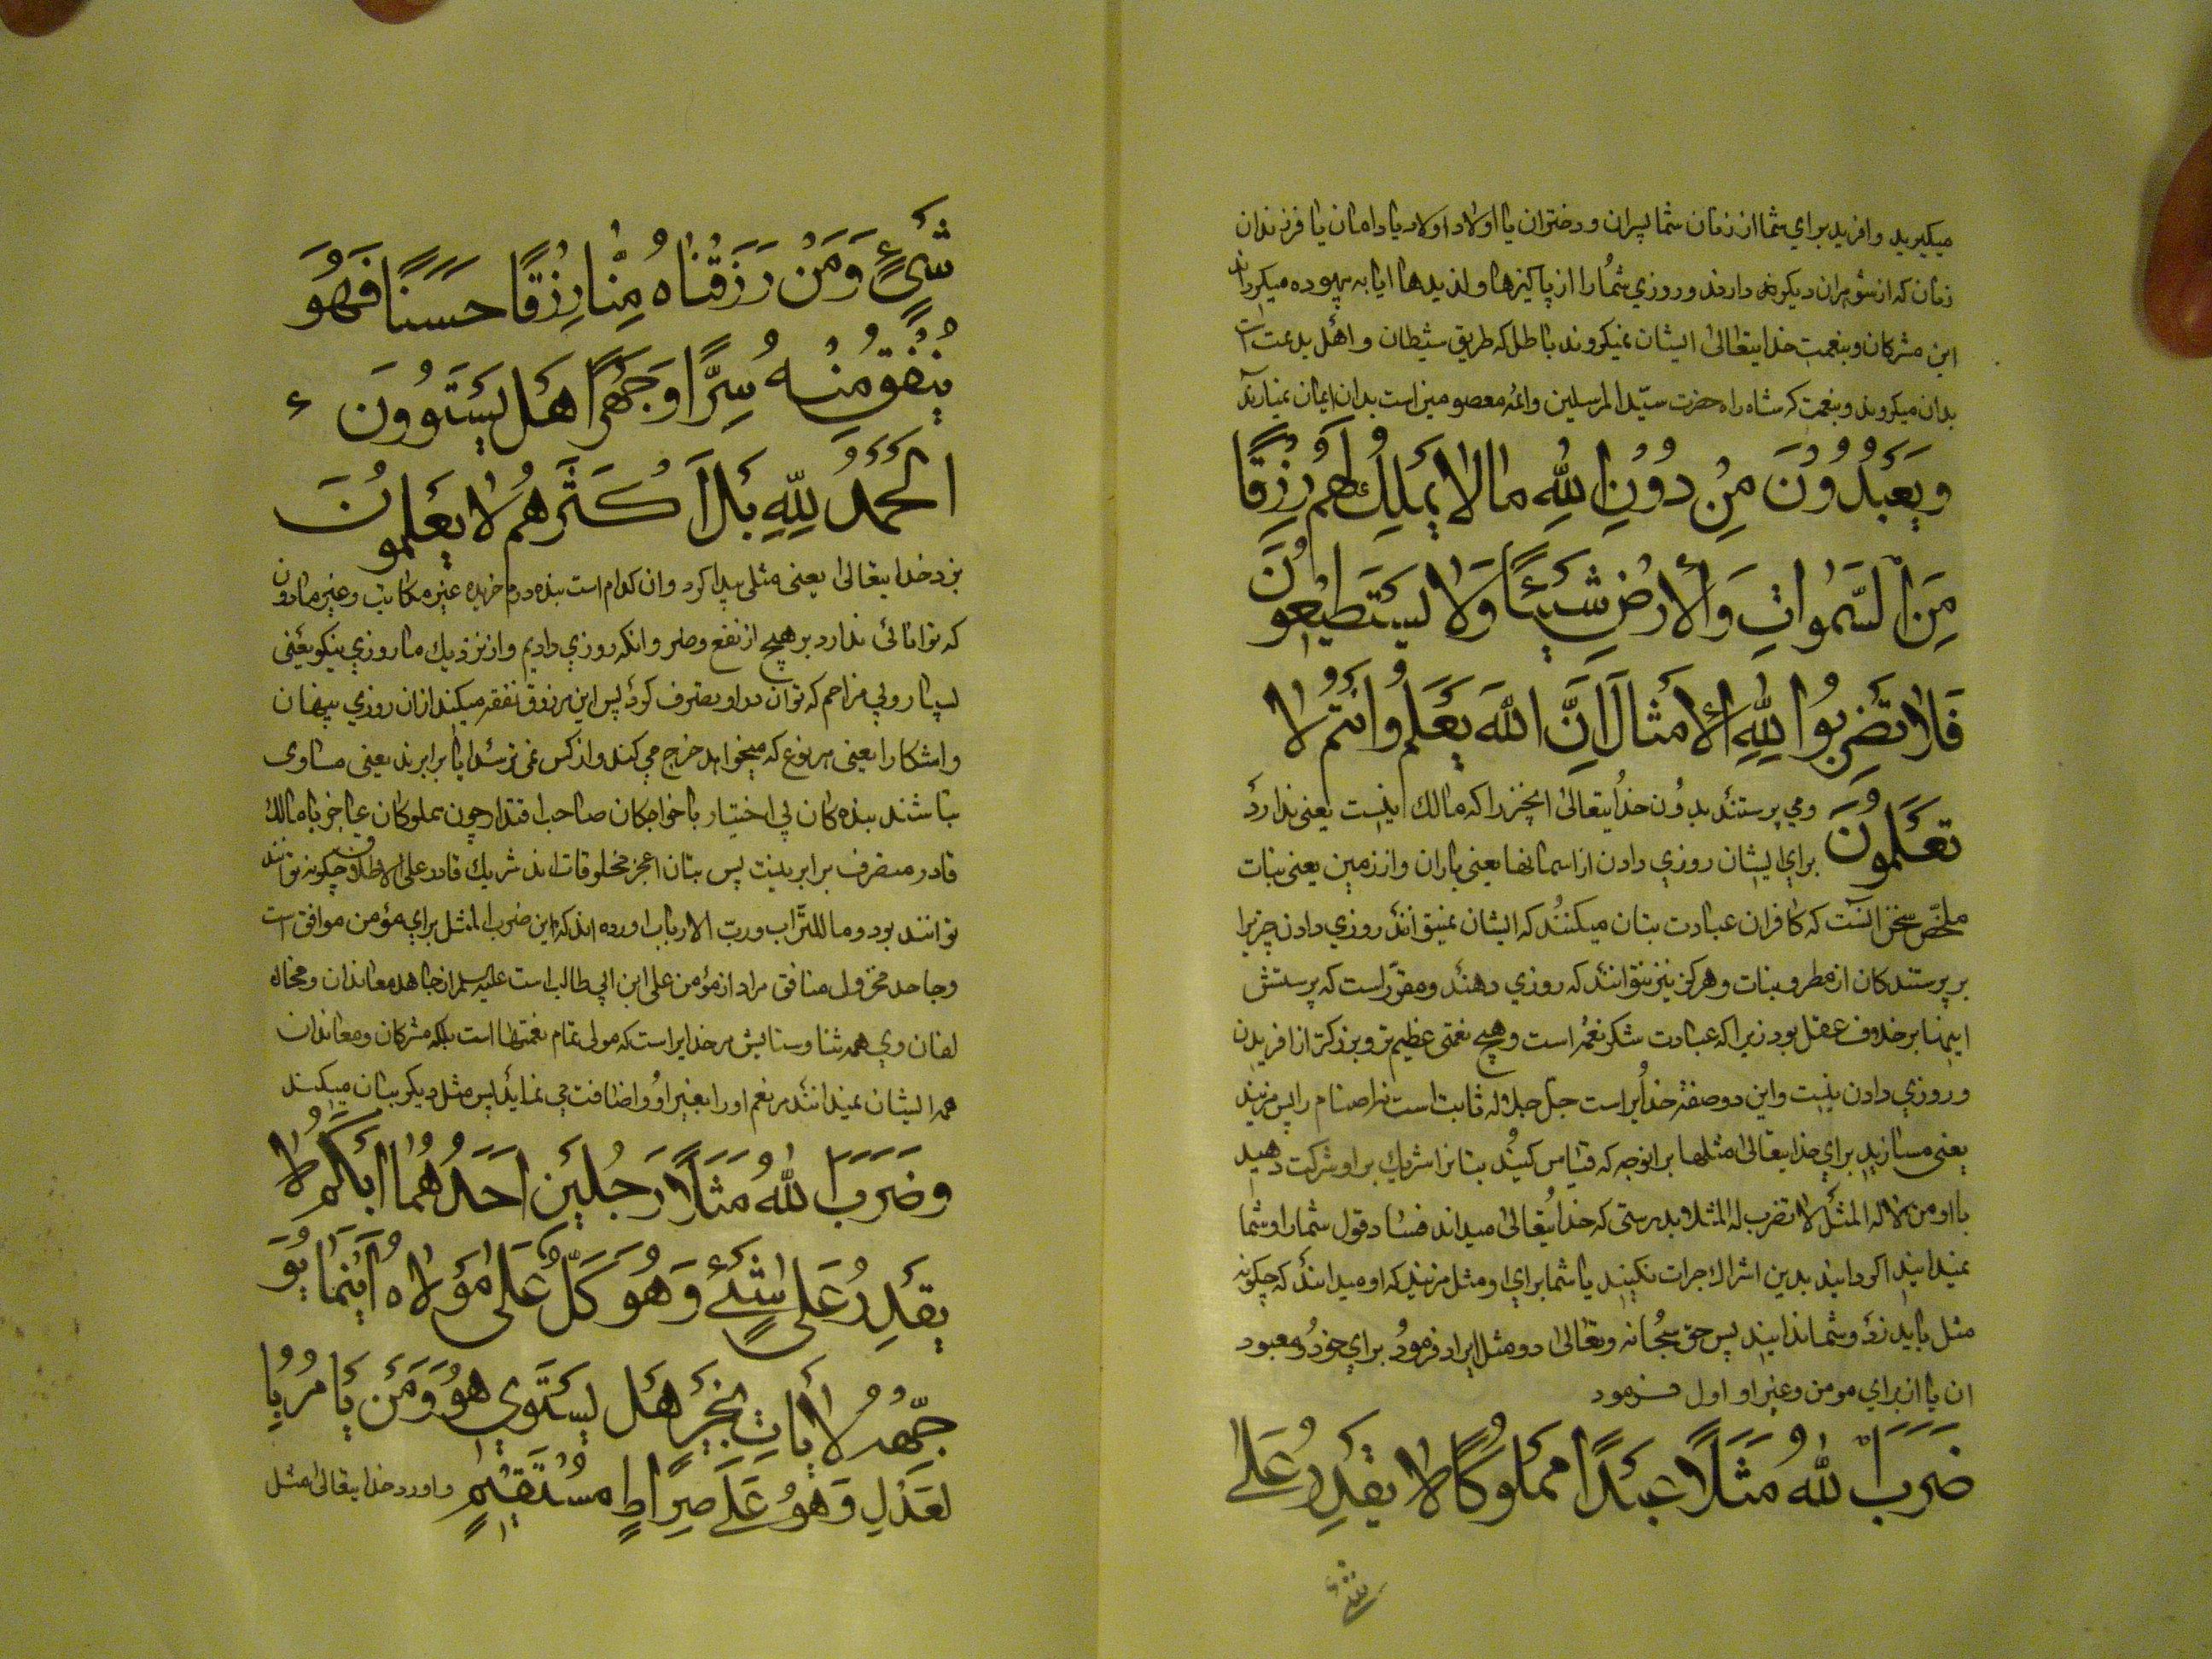 میکیرید وافرید برای شما از زنان شما پسران و دختران یا اولاد اولاد یا دامادان یا فرزندان
زنان که از شوهران دیکر دارند و روزی شما را از پاکیزها ولذیدها ایا به بیهوده میکروند
این مشرکان وبنعمت خدایتعالی ایشان نمیکروند باطل که طریق شیطان واهل بدعت است
بدان میکروند وبنعمت که شاه راه حضرت سیّد المرسلین وائمه معصومین است بدان ایمان نمیارند
وَيَعْبُدُونَ مِنْ دُوْنِ اللهِ مَا لَا يَمْلِكُ لَهُمْ رِزْقًا
مِنَ السَّمٰوَاتِ وَالْأَرْضِ شَيْئًا وَلَا يَسْتَطِيْعُونَ
فَلَا تَضْرِبُوا لِلّٰهِ الْأَمْثَالَ اِنَّ اللهَ يَعْلَمُ وَاَنْتُمْ لَا
تَعْلَمُونَ ومی پرستند بدون خدایتعالی انچیز را که مالك نیست یعنی ندارد
برای ایشان روزی دادن از اسمانها یعنی باران واز زمین یعنی نبات
ملخّص سخن انست که کافران عبادت بتان میکنند که ایشان نمیتوانند روزی دادن چیزیرا
بر پرستندکان از مطر ونبات وهرکز نیز نتوانند که روزی دهند ومقرّر است که پرستش
اینها بر خلاف عقل بود زیرا که عبادت شکر نعمه است وهیچ نعمتی عظیم تر وبزرکتر از افریدن
وروزی دادن نیست واین دو صفة خدایراست جل جلاله ثابت است نه اصنام را پس مزنید
یعنی مسازید برای خدایتعالی مثلها بر انوجه که قیاس کنید بتانرا شریك بر او شرکت دهید
با او من لا له المثل لا تضرب له المثل بدرستی که خدایتعالی میداند فساد قول شما را وشما
نمیدانید اکر دانید بدین اشراك جرات نکنید یا شما برای او مثل مزنید که او میداند که چکونه
مثل باید زد وشما ندانید پس حق سبحانه وتعالی دو مثل ایراد فرمود برای خود ومعبود
ان یا ان برای مومن وغیر او اول فرمود
ضَرَبَ اللهُ مَثَلًا عَبْدًا مَمْلُوكًا لَا يَقْدِرُ عَلٰى
شئ
شَيْءٍ وَمَنْ رَزَقْنَاهُ مِنَّا رِزْقًا حَسَنًا فَهُوَ
يُنْفِقُ مِنْهُ سِرًّا وَجَهْرًا هَلْ يَسْتَوُونَ ء
اَلْحَمْدُ لِلّٰهِ بَلْ اَكْثَرُهُمْ لَا يَعْلَمُونَ
بزد خدایتعالی یعنی مثلی پیدا کرد وان کدام است بنده درم خریده غیر مکاتب وغیر ماذون
که توانائی ندارد بر هیچ از نفع وضر وانکه روزی دادیم واز نزدیك ما روزی نیکو یعنی
بسیار وبی مزاحم که توان در او تصرف کرد پس این مرزوق نفقه میکند از ان روزی پنهان
واشکارا یعنی هر نوع که میخواهد خرج می کند واز کس نمی ترسد ایا برابرند یعنی مساوی
باشند بندهکان بی اختیار با خواجکان صاحب اقتدار چون مملوکان عاجز با مالك
قادر متصرف برابر نیست پس بتان اعجز مخلوقات اند شریك قادر علی الاطلاق چکونه توانند
توانند بود وما للتراب وربّ الارباب اورده اند که این ضرب المثل برای مؤمن موافق است
وجاحد مخزول منافق مراد از مؤمن علی ابن ابی طالب است علیه السلم از جاهد معاندان ومخالـ
لفان وی همه ثنا وستایش مر خدایراست که مولی تمام نعمتها است بلکه مشرکان ومعاندان
همه ایشان نمیدانند مر نعم او را بغیر او واضافت می نماید پس مثل دیکر بیان میکند
وَضَرَبَ اللهُ مَثَلًا رَجُلَيْنِ اَحَدُهُمَا اَبْكَمُ لَا
يَقْدِرُ عَلٰى شَيْءٍ وَهُوَ كَلٌّ عَلٰى مَوْلَاهُ اَيْنَمَا يُوَ
جِّهْهُ لَا يَأْتِ بِخَيْرٍ هَلْ يَسْتَوِي هُوَ وَمَنْ يَأْمُرُ بِا
لْعَدْلِ وَهُوَ عَلٰى صِرَاطٍ مُسْتَقِيْمٍ واورد خدایتعالی مثل